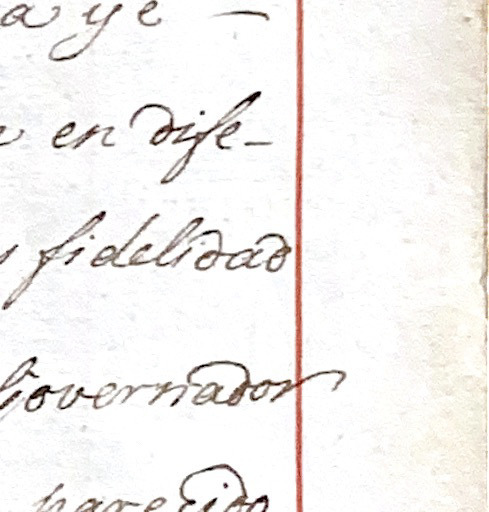 en dife-
fidelidad
Governador
parecido